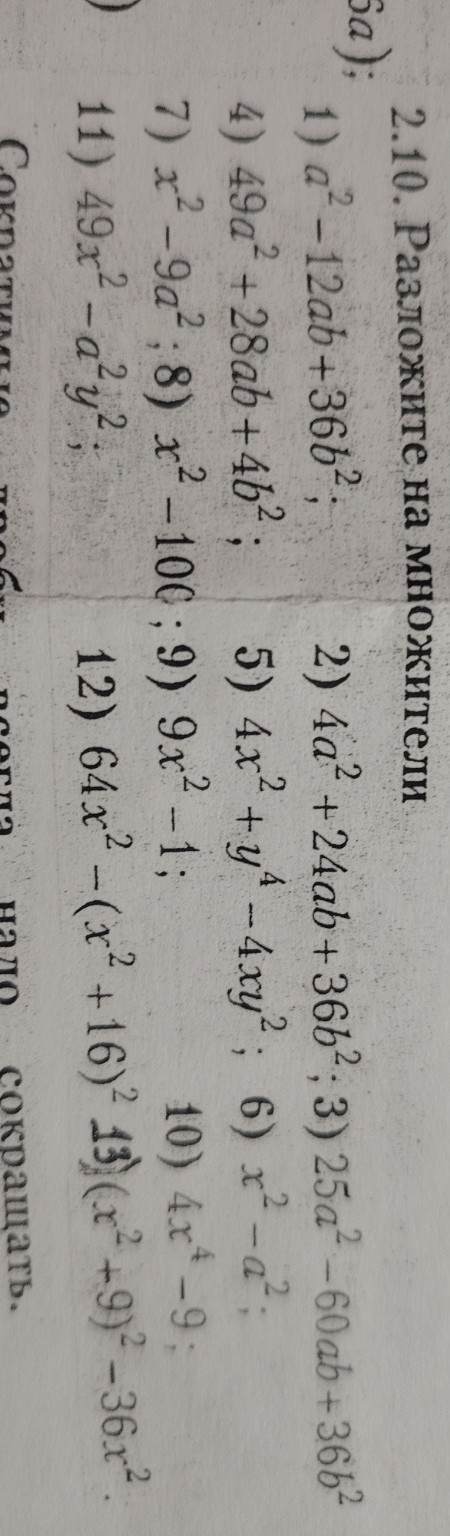 6a);
2.10. Разложите на множители
1) a² – 12ab + 36b²; 2) 4a² + 24ab + 36b²; 3) 25a² – 60ab + 36b²
4) 49a² + 28ab + 4b²; 5) 4x² + y⁴ – 4xy²; 6) x² – a²;
7) x² – 9a²; 8) x² – 100; 9) 9x² – 1; 10) 4x⁴ – 9;
11) 49x² – a²y²; 12) 64x² – (x² + 16)² 13) (x² + 9)² – 36x².
Сократимые дроби всегда надо сокращать.